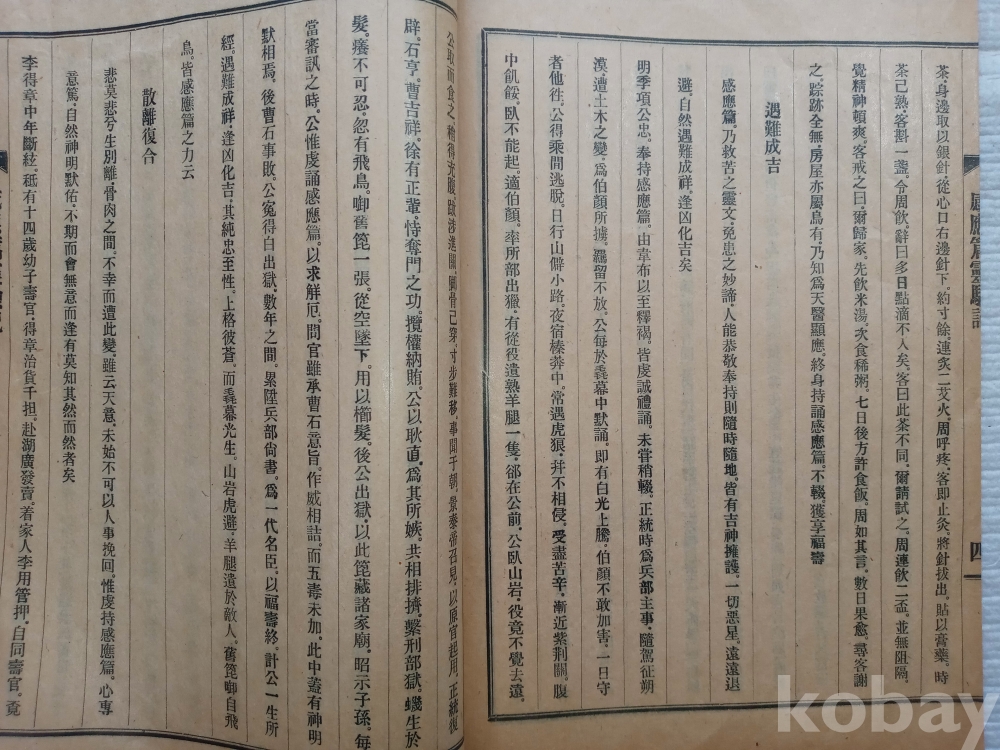 感應篇靈驗記
四
茶。身邊取以銀針。從心口右邊針下。約寸餘。連炙二艾火。周呼疼。客即止灸。將針拔出。貼以膏藥。時
茶已熟。客斟一盞。令周飲。辭曰多日點滴不入矣。客曰此茶不同。爾請試之。周連飲二盃。並無阻隔。
覺精神頓爽。客戒之曰。爾歸家。先飲米湯。次食稀粥。七日後方許食飯。周如其言。數日果愈。尋客謝
之。踪跡全無。房屋亦屬烏有。乃知為天醫顯應。終身持誦感應篇。不輟。獲享福壽
遇難成吉
感應篇。乃救苦之靈文。免患之妙諦。人能恭敬奉持則隨時隨地。皆有吉神擁護。一切惡星。遠遠退
避。自然遇難成祥。逢凶化吉矣
明季項公忠。奉持感應篇。由韋布以至釋褐。皆虔誠禮誦。未嘗稍輟。正統時爲兵部主事。隨駕征朔
漠。遭土木之變。爲伯顏所擄。羈留不放。公每於毳幕中默誦。即有白光上騰。伯顏不敢加害。一日守
者他往。公得乘間逃脫。日行山僻小路。夜宿榛莽中。常遇虎狼。幷不相侵。受盡苦辛。漸近紫荆關。腹
中飢餒。臥不能起。適伯顏。率所部出獵。有從役遺熟羊腿一隻。卻在公前。公臥山岩。役竟不覺去遠。
公取而食之 得充腹。跋涉進關。脚骨已穿。寸步難移。事聞于朝。景泰帝召見。以原官起用。正統復
辟。石亨。曹吉祥。徐有正輩。恃奪門之功。攬權納賄。公以耿直。爲其所嫉。共相排擠。繫刑部獄。蟣生於
髮。癢不可忍。忽有飛鳥。啣舊篦一張。從空墜下。用以櫛髮。後公出獄。以此篦藏諸家廟。昭示子孫。每
當審訊之時。公惟虔誦感應篇。以求解厄。問官雖承曹石意旨。作威相詰。而五毒未加。此中蓋有神明
默相焉。後曹石事敗。公寃得白出獄。數年之間。累陞兵部尙書。爲一代名臣。以福壽終。計公一生所
經。遇難成祥。逢凶化吉。其純忠至性。上格彼蒼。而毳幕光生。山岩虎避。羊腿遺於敵人。舊篦啣自飛
鳥。皆感應篇之力云
散離復合
悲莫悲兮生別離。骨肉之間。不幸而遭此變。雖云天意。未始不可以人事挽回。惟虔持感應篇。心專
意篤。自然神明默佑。不期而會無意而逢有莫知其然而然者矣
李得章中年斷絃。祗有十四歲幼子壽官。得章治貨千担。赴湖廣發賣着家人李用管押。自同壽官。竟
kobay